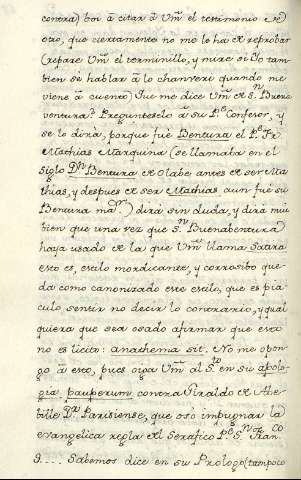 contra) boi à citar à Vm̃ el testimonio de
otro, que ciertamente no me lo ha de reprobar
(repare Vm̃ el terminillo, y mire si Yo tam-
bien se hablar à lo chanvere quando me
viene à cuento) Que me dice Vm̃ de S.ⁿ Buena
ventura? Pregunteselo à su P.ᵉ Confesor, y
se lo dirà, porque fuè Bentura el P.ᵉ Fr.
Mathias Marquina (se llamaba en el
siglo D.ⁿ Bentura de Olabe antes de ser Ma
thias, y despues de ser Mathias aun fuè su
Bentura ma.ᵒʳ) dirà sin duda, y dirà mui
bien que una vez que S.ⁿ Buenabentura
haya usado de la que Vm̃ llama Satira
esto es, estilo mordicante, y corrosibo que-
da como canonizado este estilo, que es pia
culo sentir no decir lo contrario, y qual
quiera que sea osado afirmar que esto
no es licito: anathema sit. No me opon-
go à esto, pues oiga Vm̃ al S.ᵗᵒ en su apolo-
gia pauperum contra Giraldo de Abe-
bille D.ʳ Parisiense, que oso impugnar la
evangèlica regla del Serafico P.ᵉ S.ⁿ Fran.ᶜᵒ
.... Sabemos dice en su Prologo (tampoco